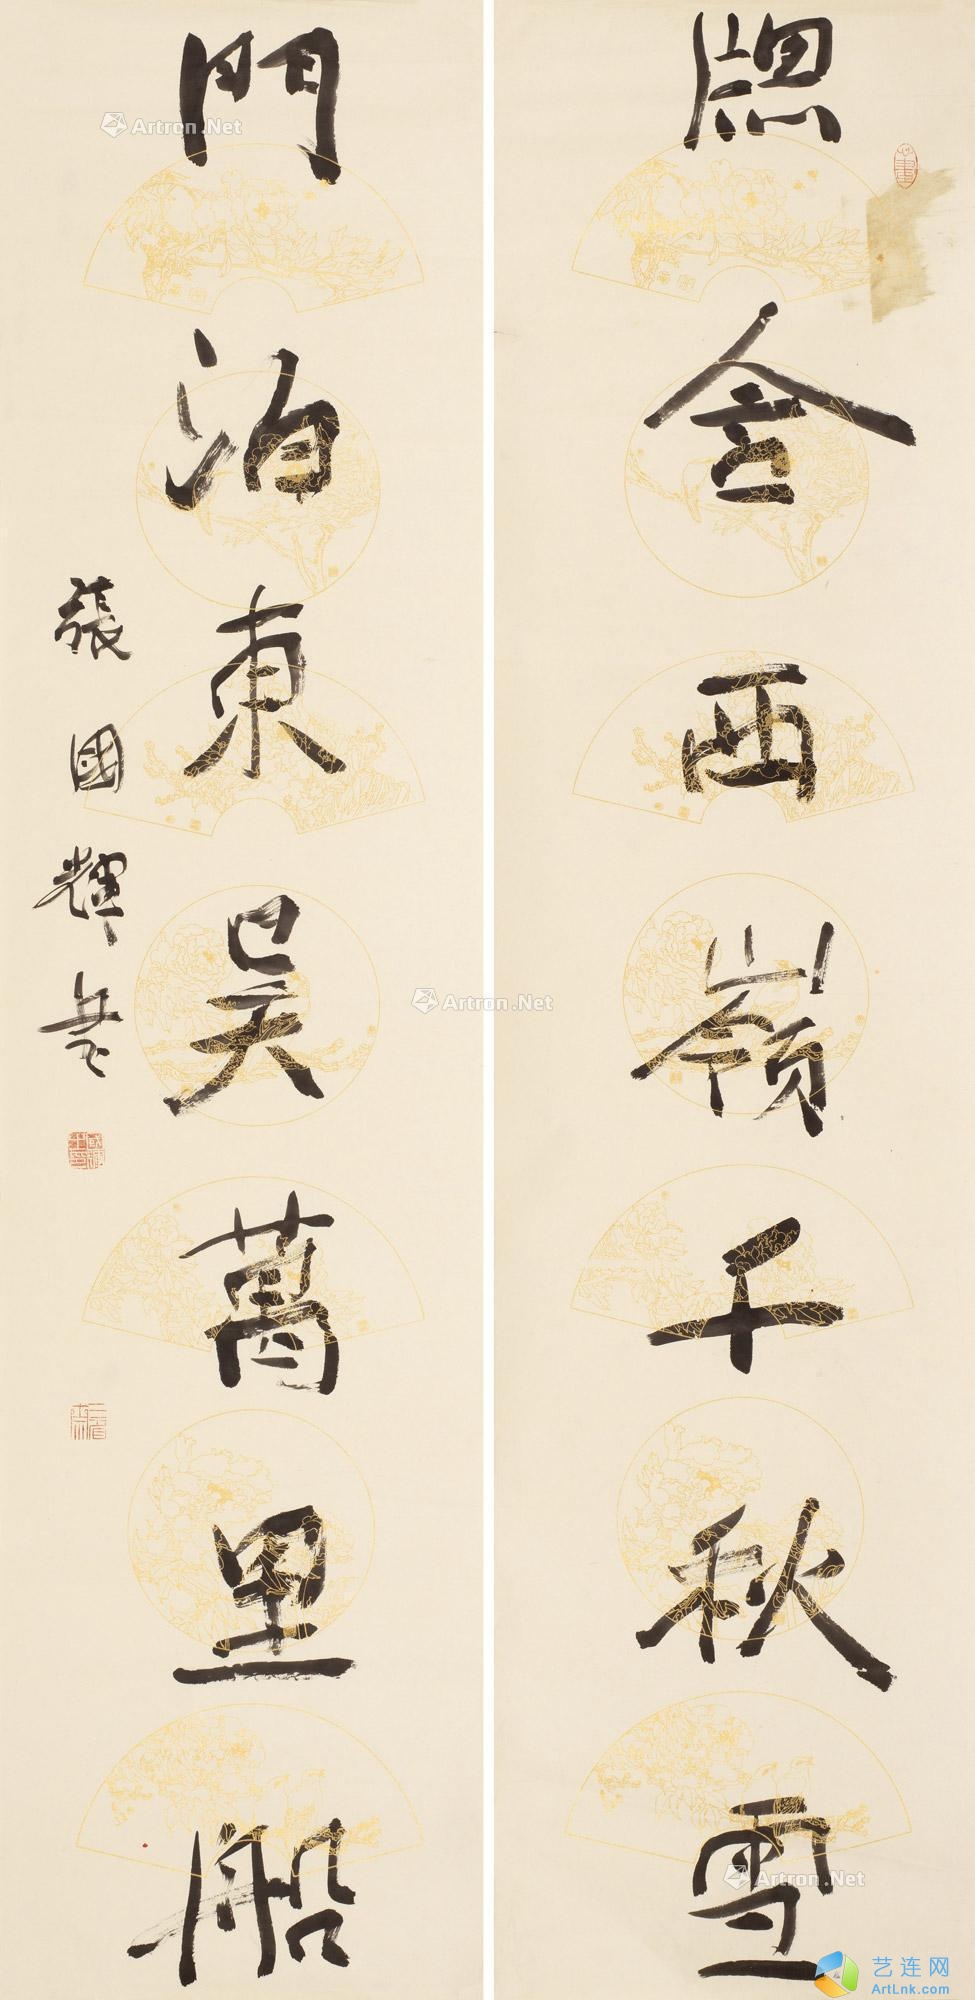 牎含西嶺千秋雪
門泊東吳萬里船
張國輝
Artron.Net
Artron.Net
Artron.Net
Artron.Net
艺连网
ArtLnk.com